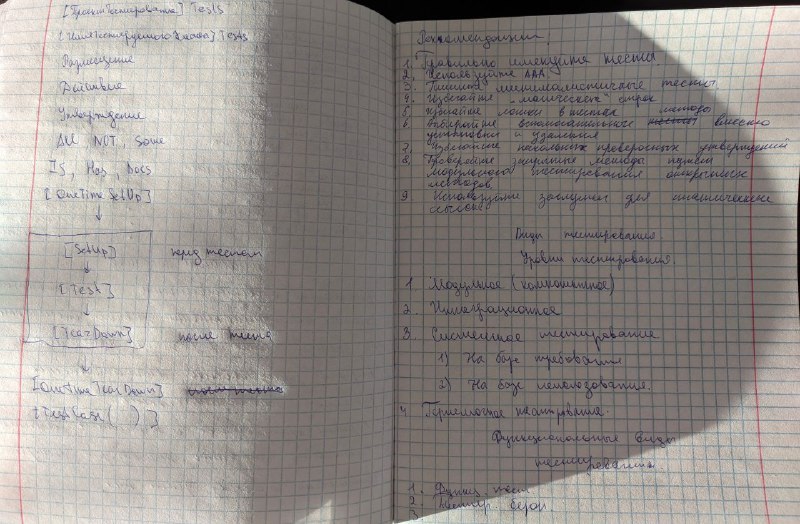 [ПроектТестирования] Tests
[ИмяТестируемогоКласса] Tests
Размещение
Действие
Утверждение
All, NOT, Some
Is, Has, Does
[OneTimeSetUp]
[SetUp] перед тестом
[Test]
[TearDown] после теста
[OneTimeTearDown]
[TestCase( )]
Рекомендации.
1. Правильно именуйте тесты.
2. Используйте AAA
3. Пишите минималистичные тесты.
4. Избегайте "магических" строк
5. Избегайте логики в тестах
6. Выбирайте вспомогательные методы вместо
установки и удаления
7. Избегайте нескольких утверждений
8. Проверяйте закрытые методы путем
модульного тестирования открытых
методов.
9. Используйте заглушки для статических
ссылок
Виды тестирования.
Уровни тестирования.
1. Модульное (компонентное)
2. Интеграционное
3. Системное тестирование
1) На базе требований
2) На базе использования.
4. Приемочное тестирование.
Функциональные виды
тестирования.
1. Функц. тест
2.
3.